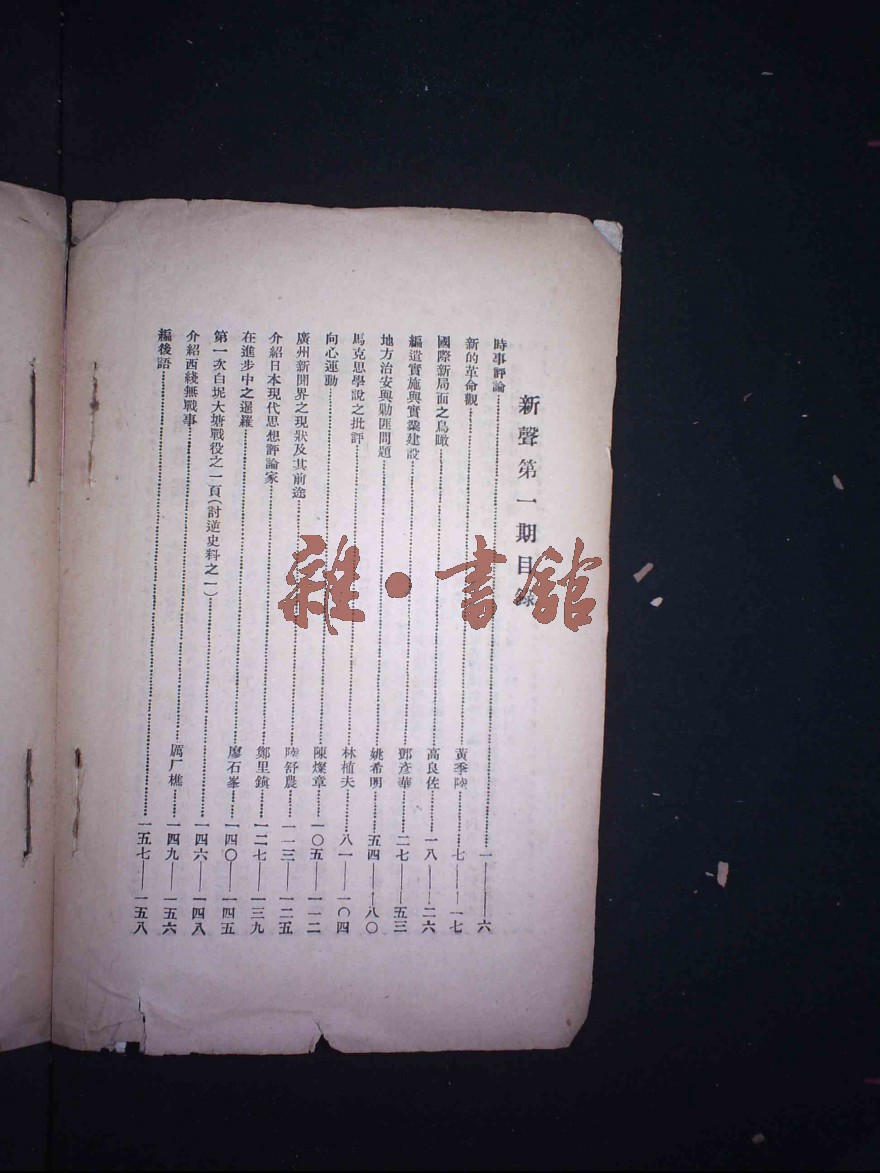 新聲第一期目錄
時事評論……一——六
新的革命觀……黃季陸……七——一七
國際新局面之鳥瞰……高良佐……一八——二六
編遣實施與實業建設……鄧彥華……二七——五三
地方治安與勦匪問題……姚希明……五四——八〇
馬克思學說之批評……林植夫……八一——一〇四
向心運動……陳燦章……一〇五——一一二
廣州新聞界之現狀及其前途……陸舒農……一一三——一二五
介紹日本現代思想評論家……鄭里鎮……一二七——一三九
在進步中之暹羅……廖石峯……一四〇——一四五
第一次白坭大塘戰役之一頁(討逆史料之一)……一四六——一四八
介紹西綫無戰事……厲厂樵……一四九——一五六
編後語……一五七——一五八
雜·書館